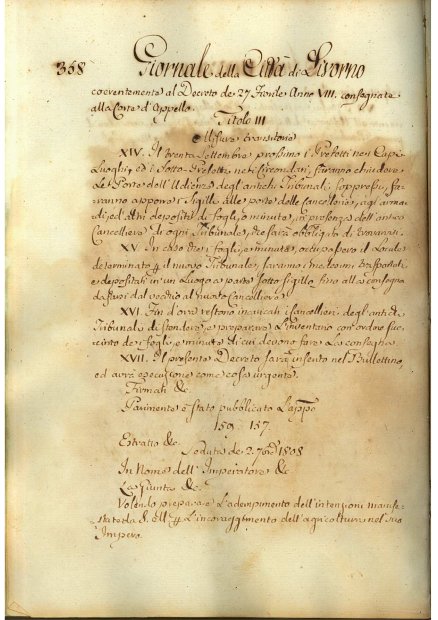 358 Giornale della Città di Livorno
coerentemente al Decreto de 27 Fiorile Anno VIII. consegnate
alla Corte d'Appello.
Titolo III
Misure transitorie
XIV. Il trenta Settembre prossimo i Prefetti nei Capi
Luoghi, ed i Sotto-Prefetti nei Circondari, faranno chiudere
Le Porte dell'Udienze degl'antichi Tribunali soppressi, fa-
ranno apporre i Sigilli alle porte delle Cancellerie, agl'arma-
di, ed altri depositi di fogli, o minute, in presenza dell'antico
Cancelliere di ogni Tribunale, che sarà obbligato di trovarvisi.
XV. In caso che i fogli, e minute, occupassero il Locale
determinato p il nuovo Tribunale, saranno i medesimi trasportati,
e depositati in un Luogo a parte sotto sigillo fino alla consegna
da farsi dal vecchio al nuovo Cancelliere.
XVI. Fin d'ora restano incaricati i Cancellieri degl'antichi
Tribunali di stendere, e preparare L'inventario con ordine suc-
cinto de i fogli, e minute di cui devono fare La consegna.
XVII. Il presente Decreto sarà inserito nel Bullettino,
ed avrà esecuzione come cosa urgente.
Firmati &c
Parimente è stato pubblicato L'app
159. 157.
Estratto &c
Seduta de 2. 7bre 1808
In Nome dell'Imperatore &c
La Giunta &c
Volendo preparare L'adempimento dell'intenzioni manife-
state da S. M. p L'incoraggimento dell'agricoltura nel suo
Impero.